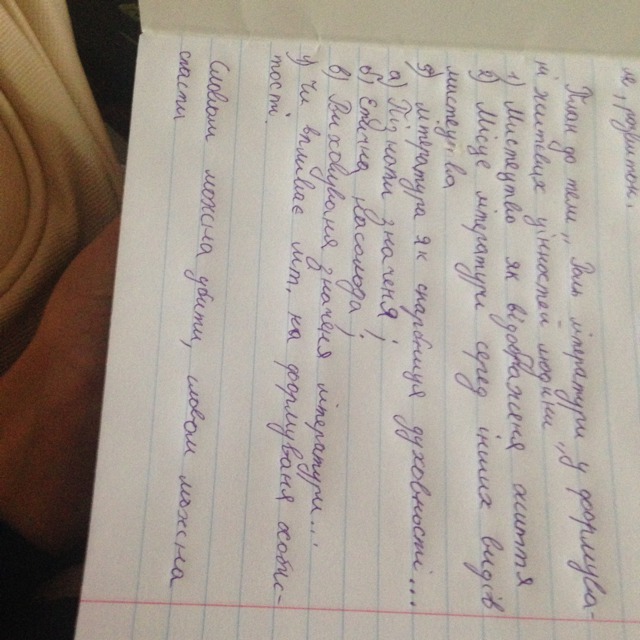 План до теми „Роль літератури у формува-
ні життєвих цінностей людини
1) Мистецтво як відображення життя
2) Місце літератури серед інших видів
мистецтва
3) література як скарбниця духовності...
а) значеня;
б) Єдина насолода!
в) значеня літератури...
4) Чи впливає літ. на формуваня
Словом можна убити, ловом можна
спасти